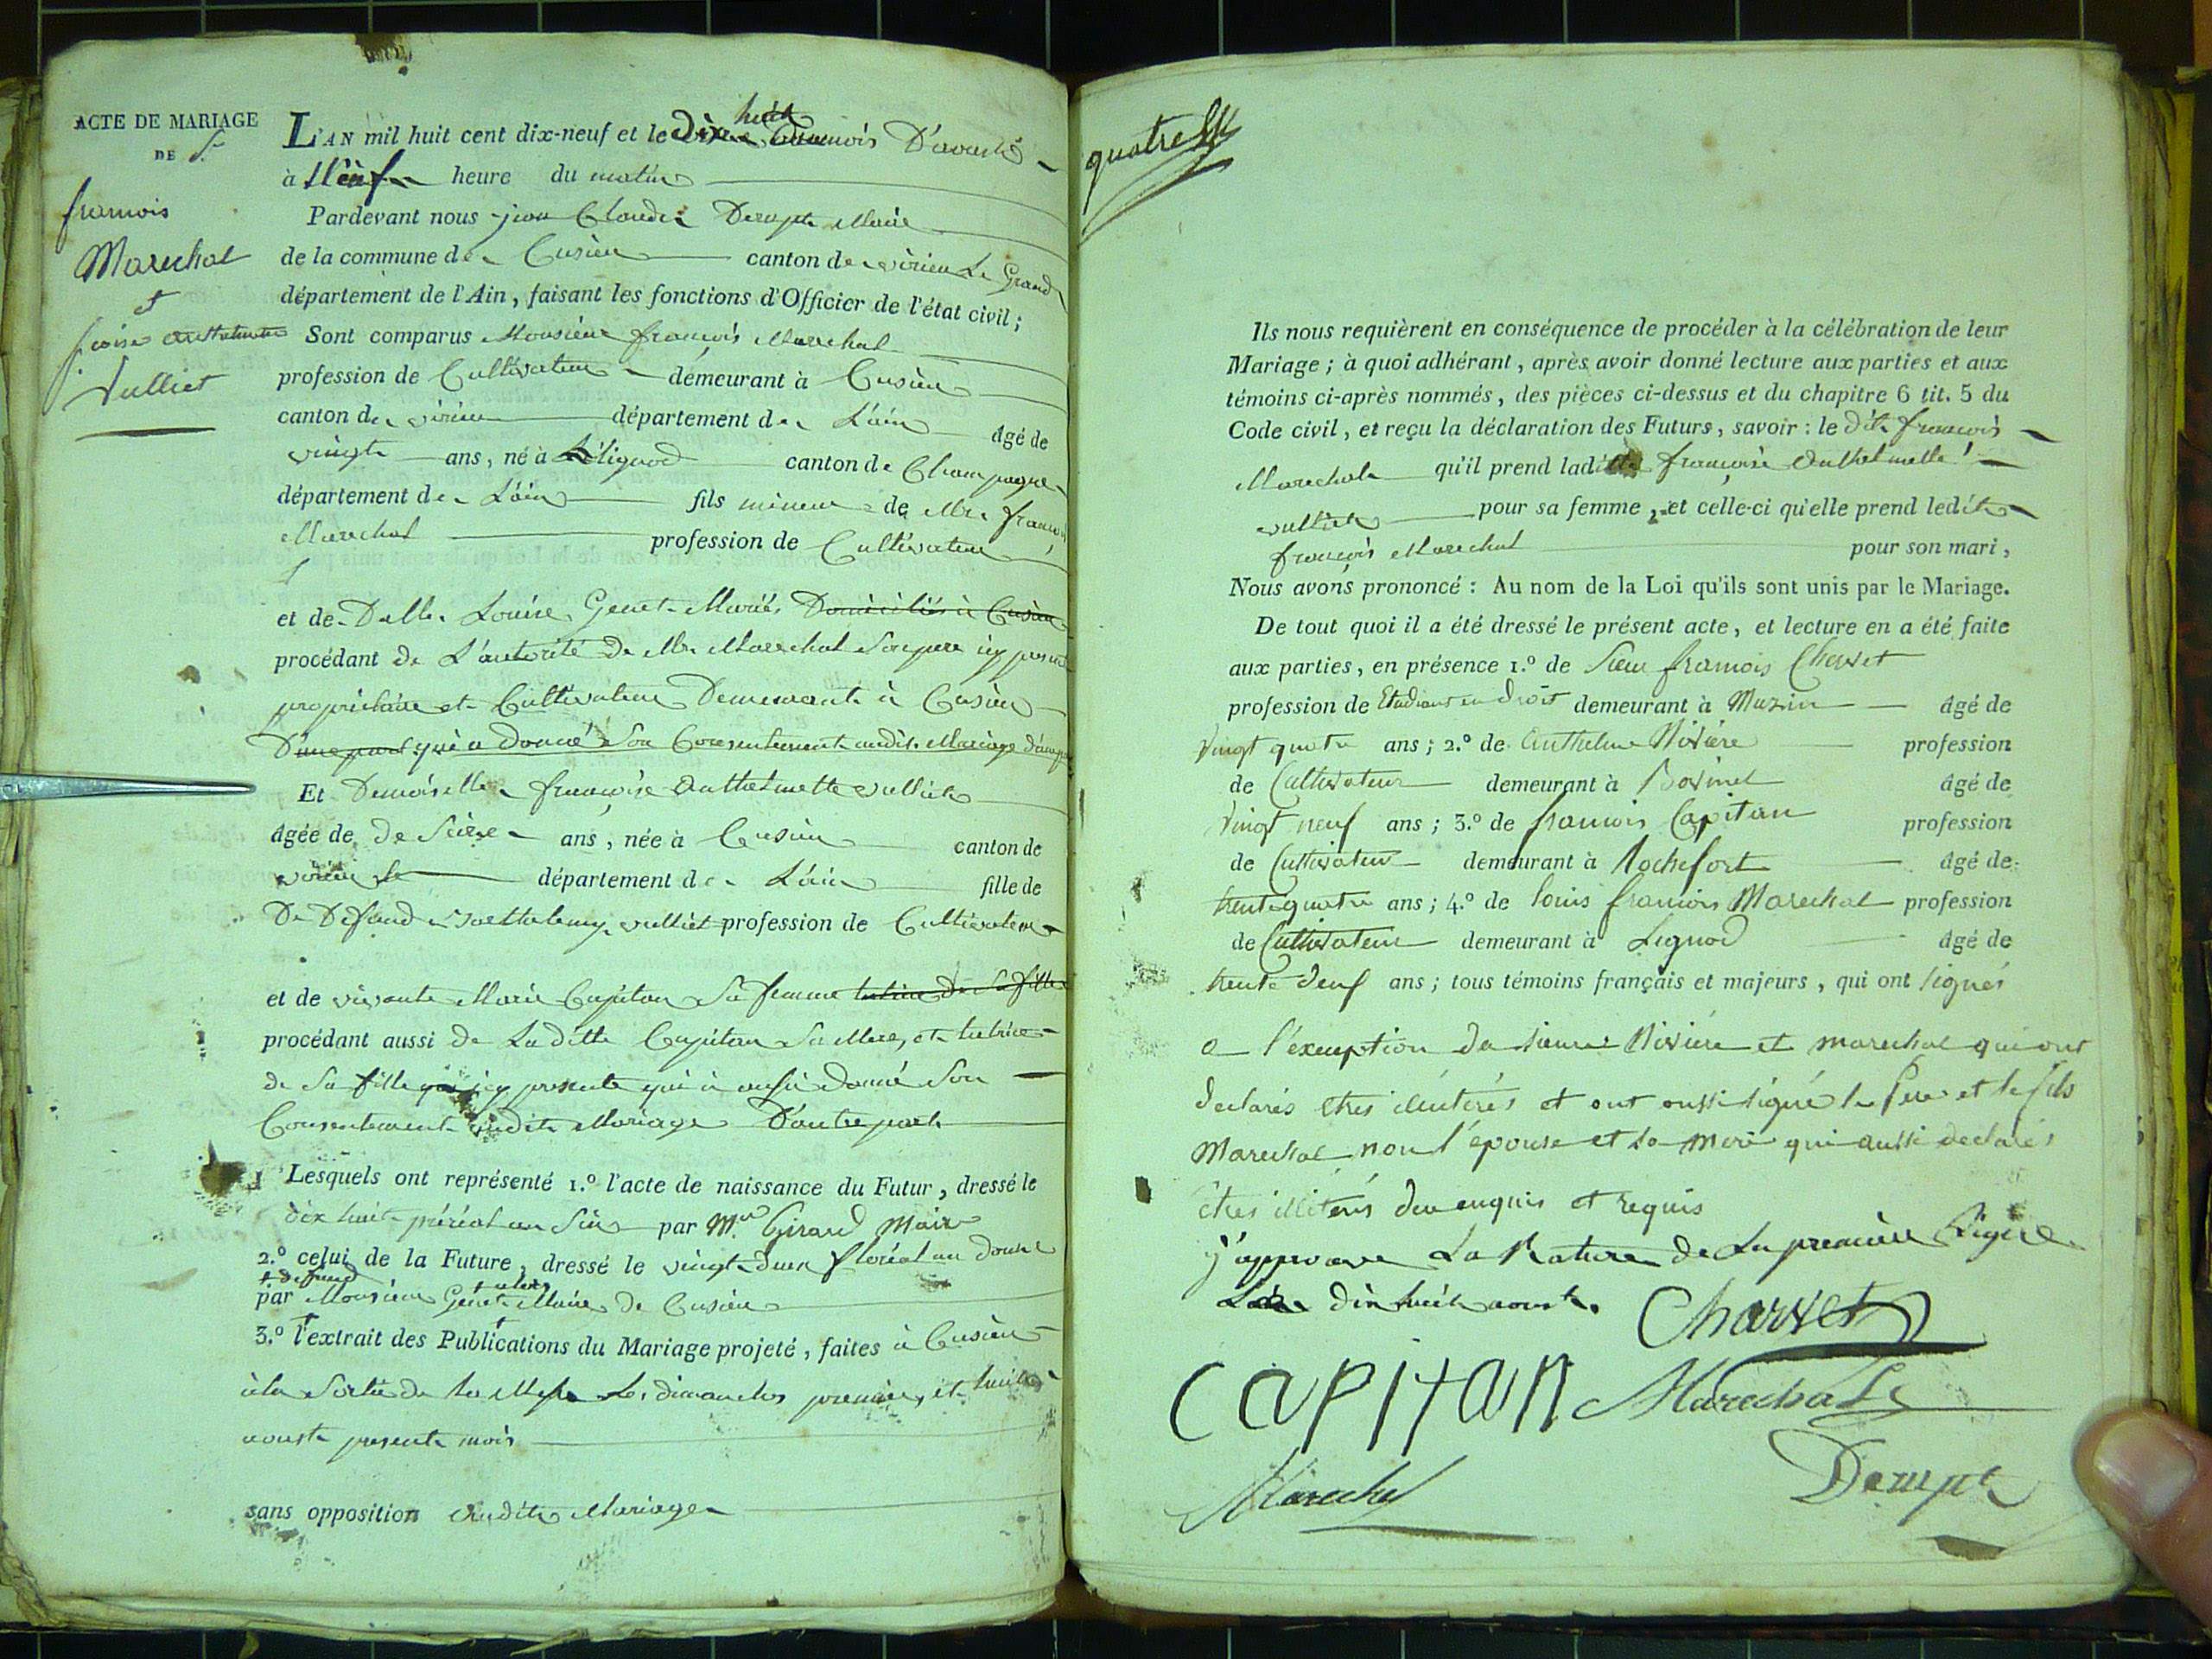 ACTE DE MARIAGE
DE Sr
francois
Marechal
et
fcoise anthelmette
Vulliet
L'AN mil huit cent dix-neuf et le Dix huit du mois D'aoust
à Neuf heure du matin
Pardevant nous jean Claude Derupt Maire
de la commune de Cusieu canton de virieu Le Grand
département de l'Ain, faisant les fonctions d'Officier de l'état civil;
Sont comparus Monsieur françois Marechal
profession de Cultivateur demeurant à Cusieu
canton de virieu département de L'ain âgé de
vingt ans, né à Lilignod canton de Champagne
département de L'ain fils mineur de Mr françois
Marechal profession de Cultivateur
et de Delle Louise Genet Mariés Domiciliés à Cusieu
procédant de L'autorité de Mr Marechal Son pere icy present
propriétaire et Cultivateur Demeurant à Cusieu
D'une part qui a donné Son Consentement audit Mariage d'une part
Et Demoiselle françoise Anthelmette vulliet
âgée de de Seize ans, née à Cusieu canton de
virieu le département de L'ain fille de
De Defund Barthelemy vulliet profession de Cultivateur
et de vivante Marie Capitan Sa femme tutrice De Sa fille
procédant aussi de La ditte Capitan Sa Mere, et tutrice
de Sa fille icy presente qui à aussi donné Son
Consentement audit Mariage D'autre part
Lesquels ont représenté 1.º l'acte de naissance du Futur, dressé le
dix huit preréal an Six par Mr. Girard Maire
2.º celui de la Future, dressé le vingt deux floréal an douze
par Monsieur Genet Maire de Cusieu
3.º l'extrait des Publications du Mariage projeté, faites à Cusieu
à la Sortie de la Messe Les dimanches premier, et huit
aoust presente mois
sans opposition Audite Mariage
quatre
Ils nous requièrent en conséquence de procéder à la célébration de leur
Mariage; à quoi adhérant, après avoir donné lecture aux parties et aux
témoins ci-après nommés, des pièces ci-dessus et du chapitre 6 tit. 5 du
Code civil, et reçu la déclaration des Futurs, savoir: le dit françois
Marechal qu'il prend ladite françoise Anthelmette
vulliet pour sa femme, et celle-ci qu'elle prend ledit
françois Marechal pour son mari,
Nous avons prononcé: Au nom de la Loi qu'ils sont unis par le Mariage.
De tout quoi il a été dressé le présent acte, et lecture en a été faite
aux parties, en présence 1.º de Sieur francois Charvet
profession de Etudiant en Droit demeurant à Muzin âgé de
vingt quatre ans; 2.º de Anthelme Rivière profession
de Cultivateur demeurant à Bovinel âgé de
vingt neuf ans; 3.º de francois Capitan profession
de Cultivateur demeurant à Rochefort âgé de
trente quatre ans; 4.º de louis francois Marechal profession
de Cultivateur demeurant à Lignod âgé de
trente deuf ans; tous témoins français et majeurs, qui ont signés
a l'exeuption de sieur Rivière et marechal qui ont
declarés etres illitérés et ont aussi signé le Pere et le fils
Marechal non l'épouse et la mere qui aussi declarés
êtres illiterés de ce enquis et requis
j'approuve La Rature de La première Ligne
Le dix huit aoust.
Charvet
CAPITAN Marechal
Marechal
Derupt